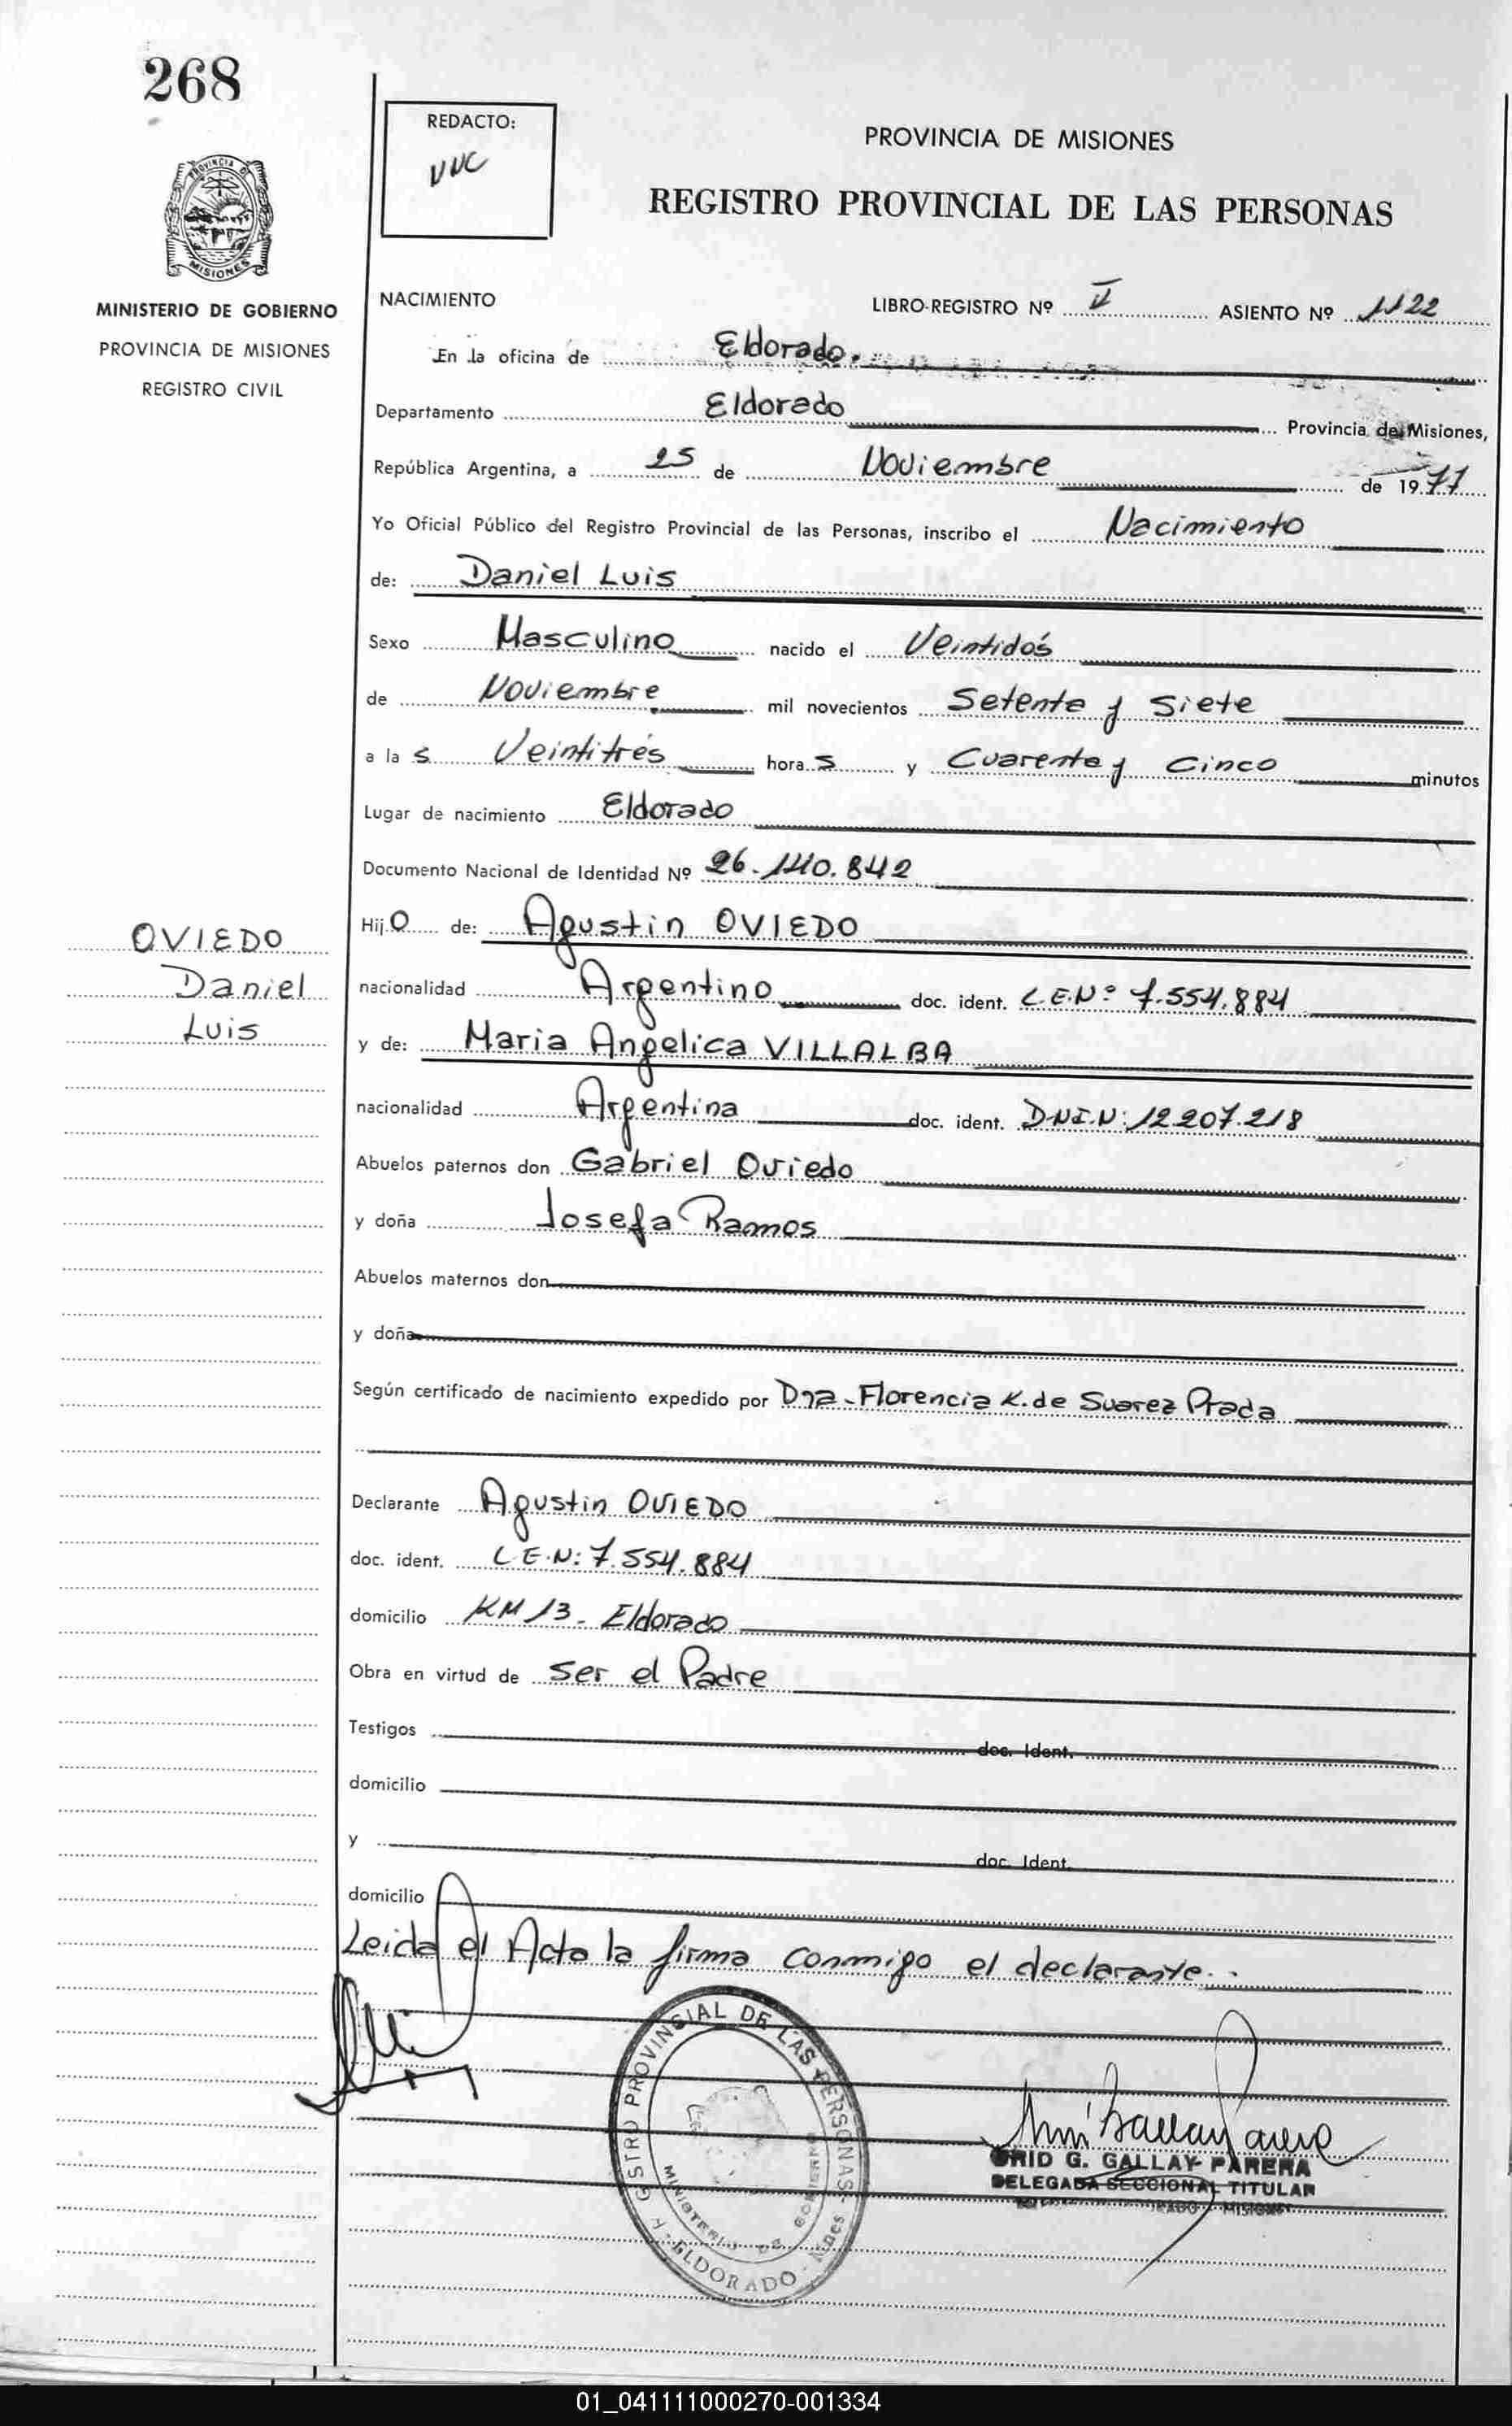 268
REDACTO:
VVC
PROVINCIA DE MISIONES
REGISTRO PROVINCIAL DE LAS PERSONAS
PROVINCIA DE
MISIONES
MINISTERIO DE GOBIERNO
PROVINCIA DE MISIONES
REGISTRO CIVIL
NACIMIENTO
LIBRO-REGISTRO Nº II ASIENTO Nº 1122
En la oficina de Eldorado.
Departamento Eldorado Provincia de Misiones,
República Argentina, a 25 de Noviembre de 1977
Yo Oficial Público del Registro Provincial de las Personas, inscribo el Nacimiento
de: Daniel Luis
Sexo Masculino nacido el Veintidós
de Noviembre mil novecientos Setenta y Siete
a la s Veintitrés hora s y Cuarenta y Cinco minutos
Lugar de nacimiento Eldorado
Documento Nacional de Identidad Nº 26.140.842
OVIEDO
Daniel
Luis
Hij O de: Agustin OVIEDO
nacionalidad Argentino doc. ident. L.E.Nº 7.554.884
y de: Maria Angelica VILLALBA
nacionalidad Argentina doc. ident. D.N.I.N: 12.207.218
Abuelos paternos don Gabriel Oviedo
y doña Josefa Ramos
Abuelos maternos don
y doña
Según certificado de nacimiento expedido por Dra. Florencia K. de Suarez Prada
Declarante Agustin OVIEDO
doc. ident. L.E.N: 7.554.884
domicilio KM 13 - Eldorado
Obra en virtud de ser el Padre
Testigos doc. Ident.
domicilio
y doc. Ident.
domicilio
Leida el Acta la firma conmigo el declarante.
REGISTRO PROVINCIAL DE LAS PERSONAS
MINISTERIO DE GOBIERNO
ELDORADO - Mnes
G. GALLAY PARERA
DELEGADA SECCIONAL TITULAR
MISIONES
01_041111000270-001334